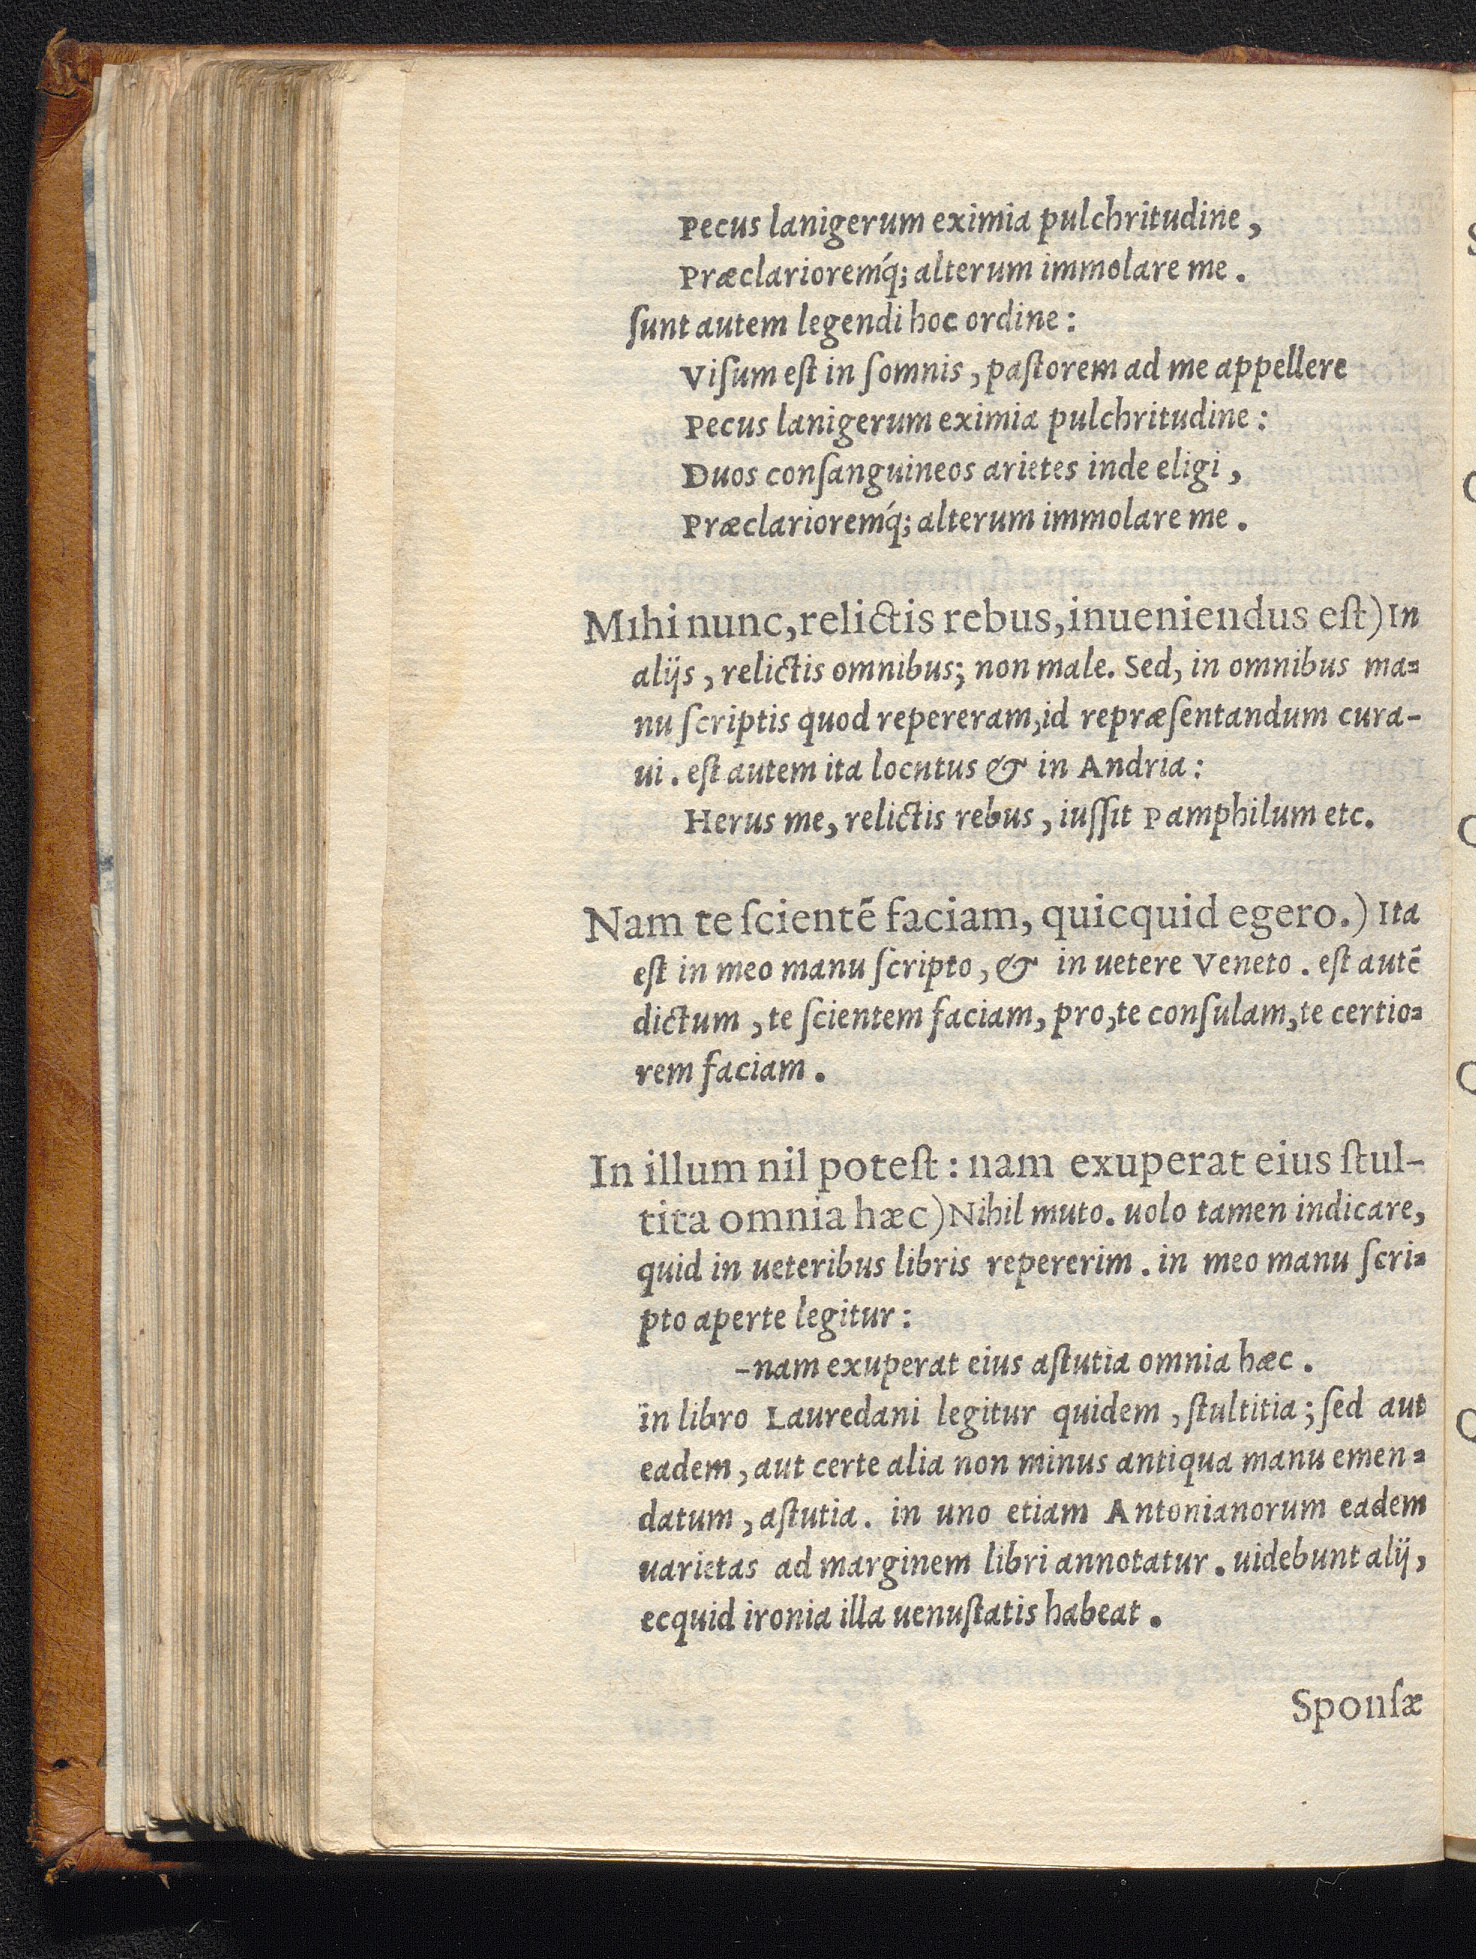 Pecus lanigerum eximia pulchritudine,
Præclarioremq́; alterum immolare me.
ſunt autem legendi hoc ordine:
Viſum eſt in ſomnis, paſtorem ad me appellere
Pecus lanigerum eximia pulchritudine:
Duos conſanguineos arietes inde eligi,
Præclarioremq́; alterum immolare me.
Mihi nunc, relictis rebus, inueniendus eſt) In
alijs, relictis omnibus; non male. Sed, in omnibus ma=
nu ſcriptis quod repereram, id repræſentandum cura-
ui. eſt autem ita locutus & in Andria:
Herus me, relictis rebus, iuſſit Pamphilum etc.
Nam te ſcientẽ faciam, quicquid egero.) Ita
eſt in meo manu ſcripto, & in uetere Veneto. eſt autẽ
dictum, te ſcientem faciam, pro, te conſulam, te certio=
rem faciam.
In illum nil poteſt: nam exuperat eius ſtul-
titia omnia hæc) Nihil muto. uolo tamen indicare,
quid in ueteribus libris repererim. in meo manu ſcri=
pto aperte legitur:
-nam exuperat eius aſtutia omnia hæc.
in libro Lauredani legitur quidem, ſtultitia; ſed aut
eadem, aut certe alia non minus antiqua manu emen=
datum, aſtutia. in uno etiam Antonianorum eadem
uarietas ad marginem libri annotatur. uidebunt alij,
ecquid ironia illa uenuſtatis habeat.
Sponſæ